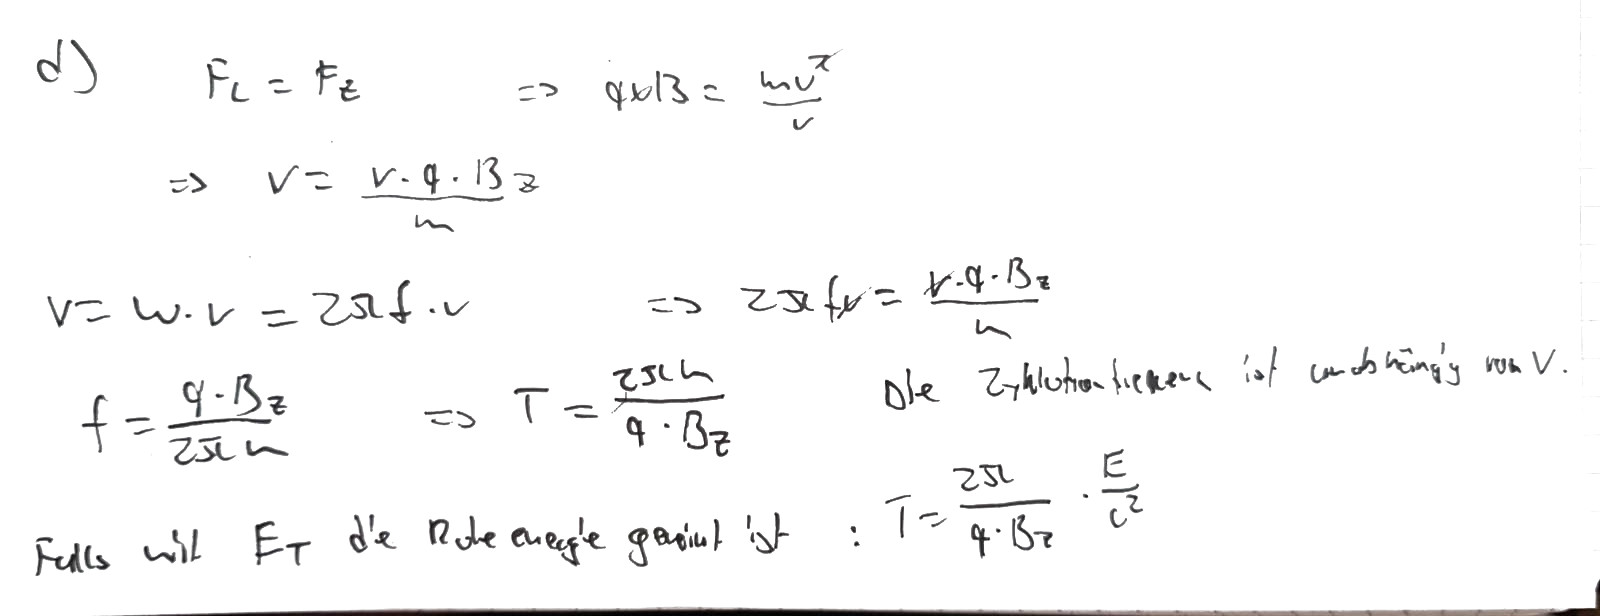 d) F_L = F_Z => qvB = mv²/r
=> v = r·q·B_z/m
v = ω·r = 2πf·r => 2πfr = r·q·B_z/m
f = q·B_z/2πm => T = 2πm/q·B_z Die Zyklotronfrequenz ist unabhängig von V.
Falls mit E_T die Ruheenergie gemeint ist : T = 2π/q·B_z · E/c²